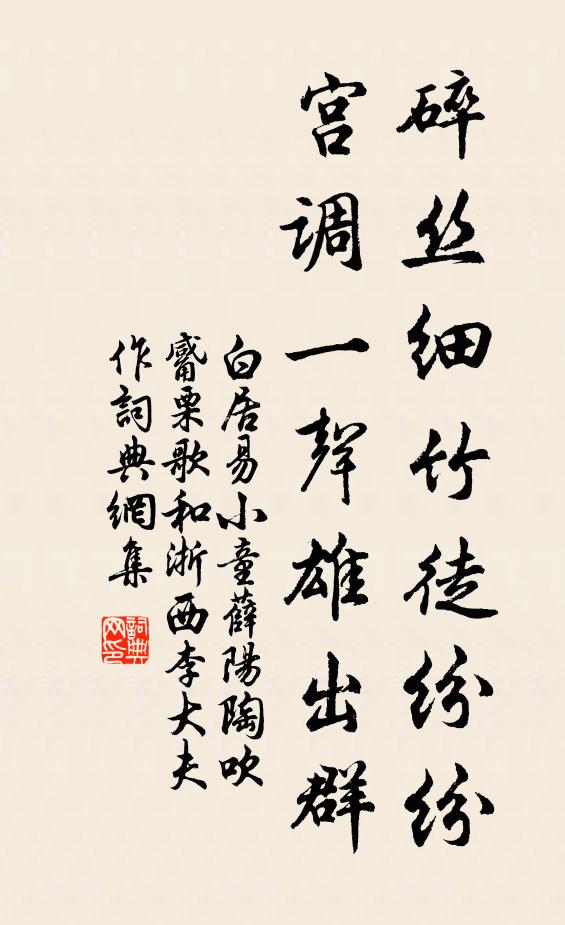 碎丝细竹徒纷纷
宫调一聲雄出群
白居易小童薛陽陶吹
觱栗歌和浙西李大夫
作詞典網集
詞典网印